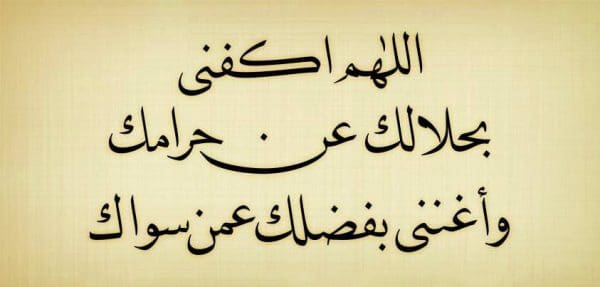 اللهم اكفنى
بحلالك عن حرامك
وأغننى بفضلك عمن سواك